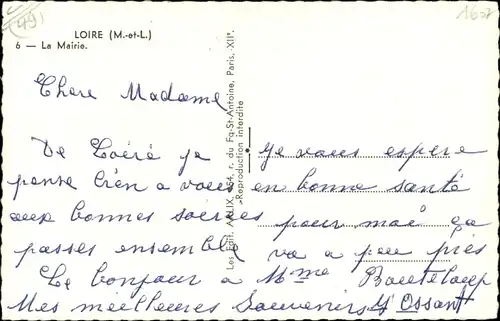 (49)
1607
LOIRE (M.-et-L.)
6 — La Mairie.
Chere Madame
De Loiré je
pense bien a vous
aux bonnes soirées
passes ensemble
Je vous espere
en bonne santé
pour moi ça
va a peu pres
Le bonjour a Mme
Mes meilleures Souvenirs
Y Ossant
Les Edit. 254, r. du Fg-St-Antoine, Paris, XII°.
Reproduction interdite